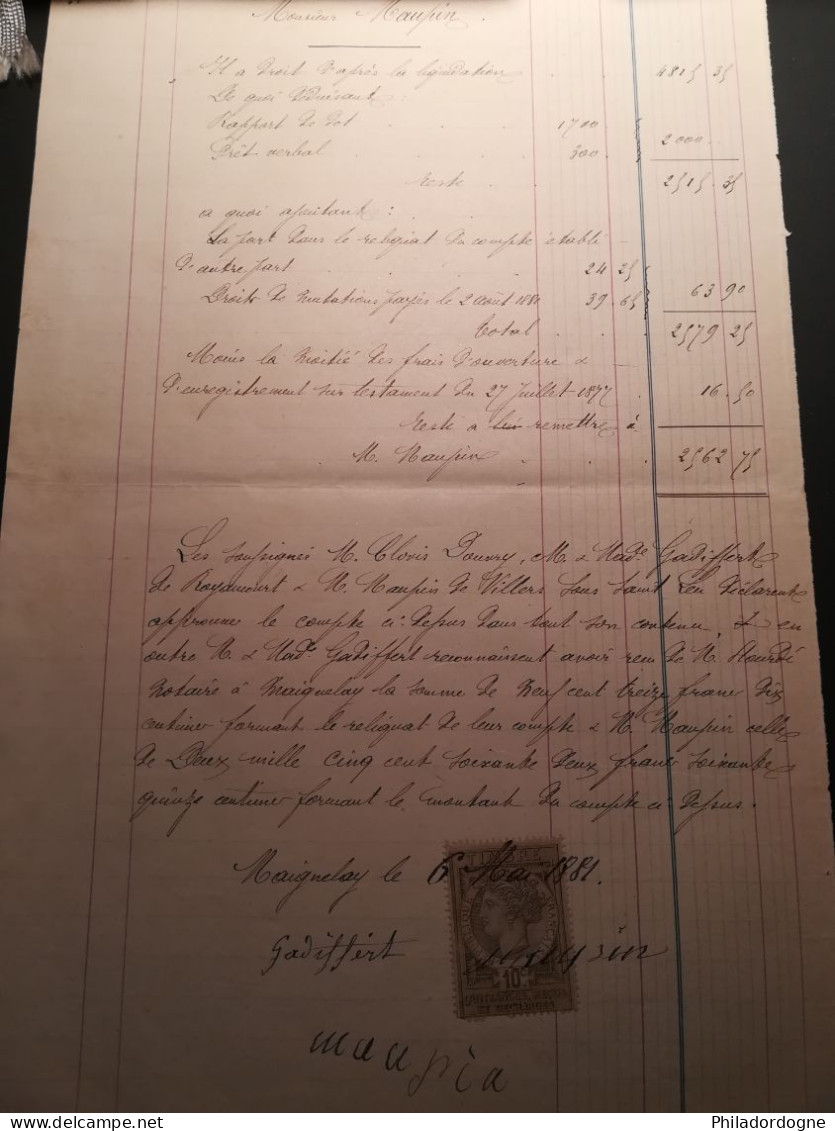 Monsieur Maupin.
Il a Droit d'après la liquidation . 4515 35
De quoi déduisant :
Rapport de Dot . . . . 1700
Prêt verbal . . . . 300 . 2000
Reste . . 2515.35
a quoi ajoutant :
Sa part dans le reliquat du compte établi
d'autre part . . . . . 24 25
Droits de mutations payés le 2 août 1880 39.65 63 90
Total . . 2579 25
Moins la moitié des frais d'ouverture &
d'enregistrement sur testament du 27 Juillet 1877 . 16.50
Reste a remettre à
M. Maupin . . . 2562 75
Les soussignés M. Clovis Douvry, M. & Made Gadiffert
de Royaucourt & M. Maupin de Villers sous Saint Leu déclarent
approuver le compte ci-dessus dans tout son contenu, & en
outre M. & Made Gadiffert reconnaissent avoir reçu de M.
Notaire à Maignelay la somme de Neuf cent treize franc dix
centimes formant le reliquat de leur compte & M. Maupin celle
de Deux mille cinq cent soixante deux franc soixante
quinze centimes formant le montant du compte ci dessus.
Maignelay le 6 Mai 1881.
Gadiffert Maupin
maupin
10c
Philadordogne